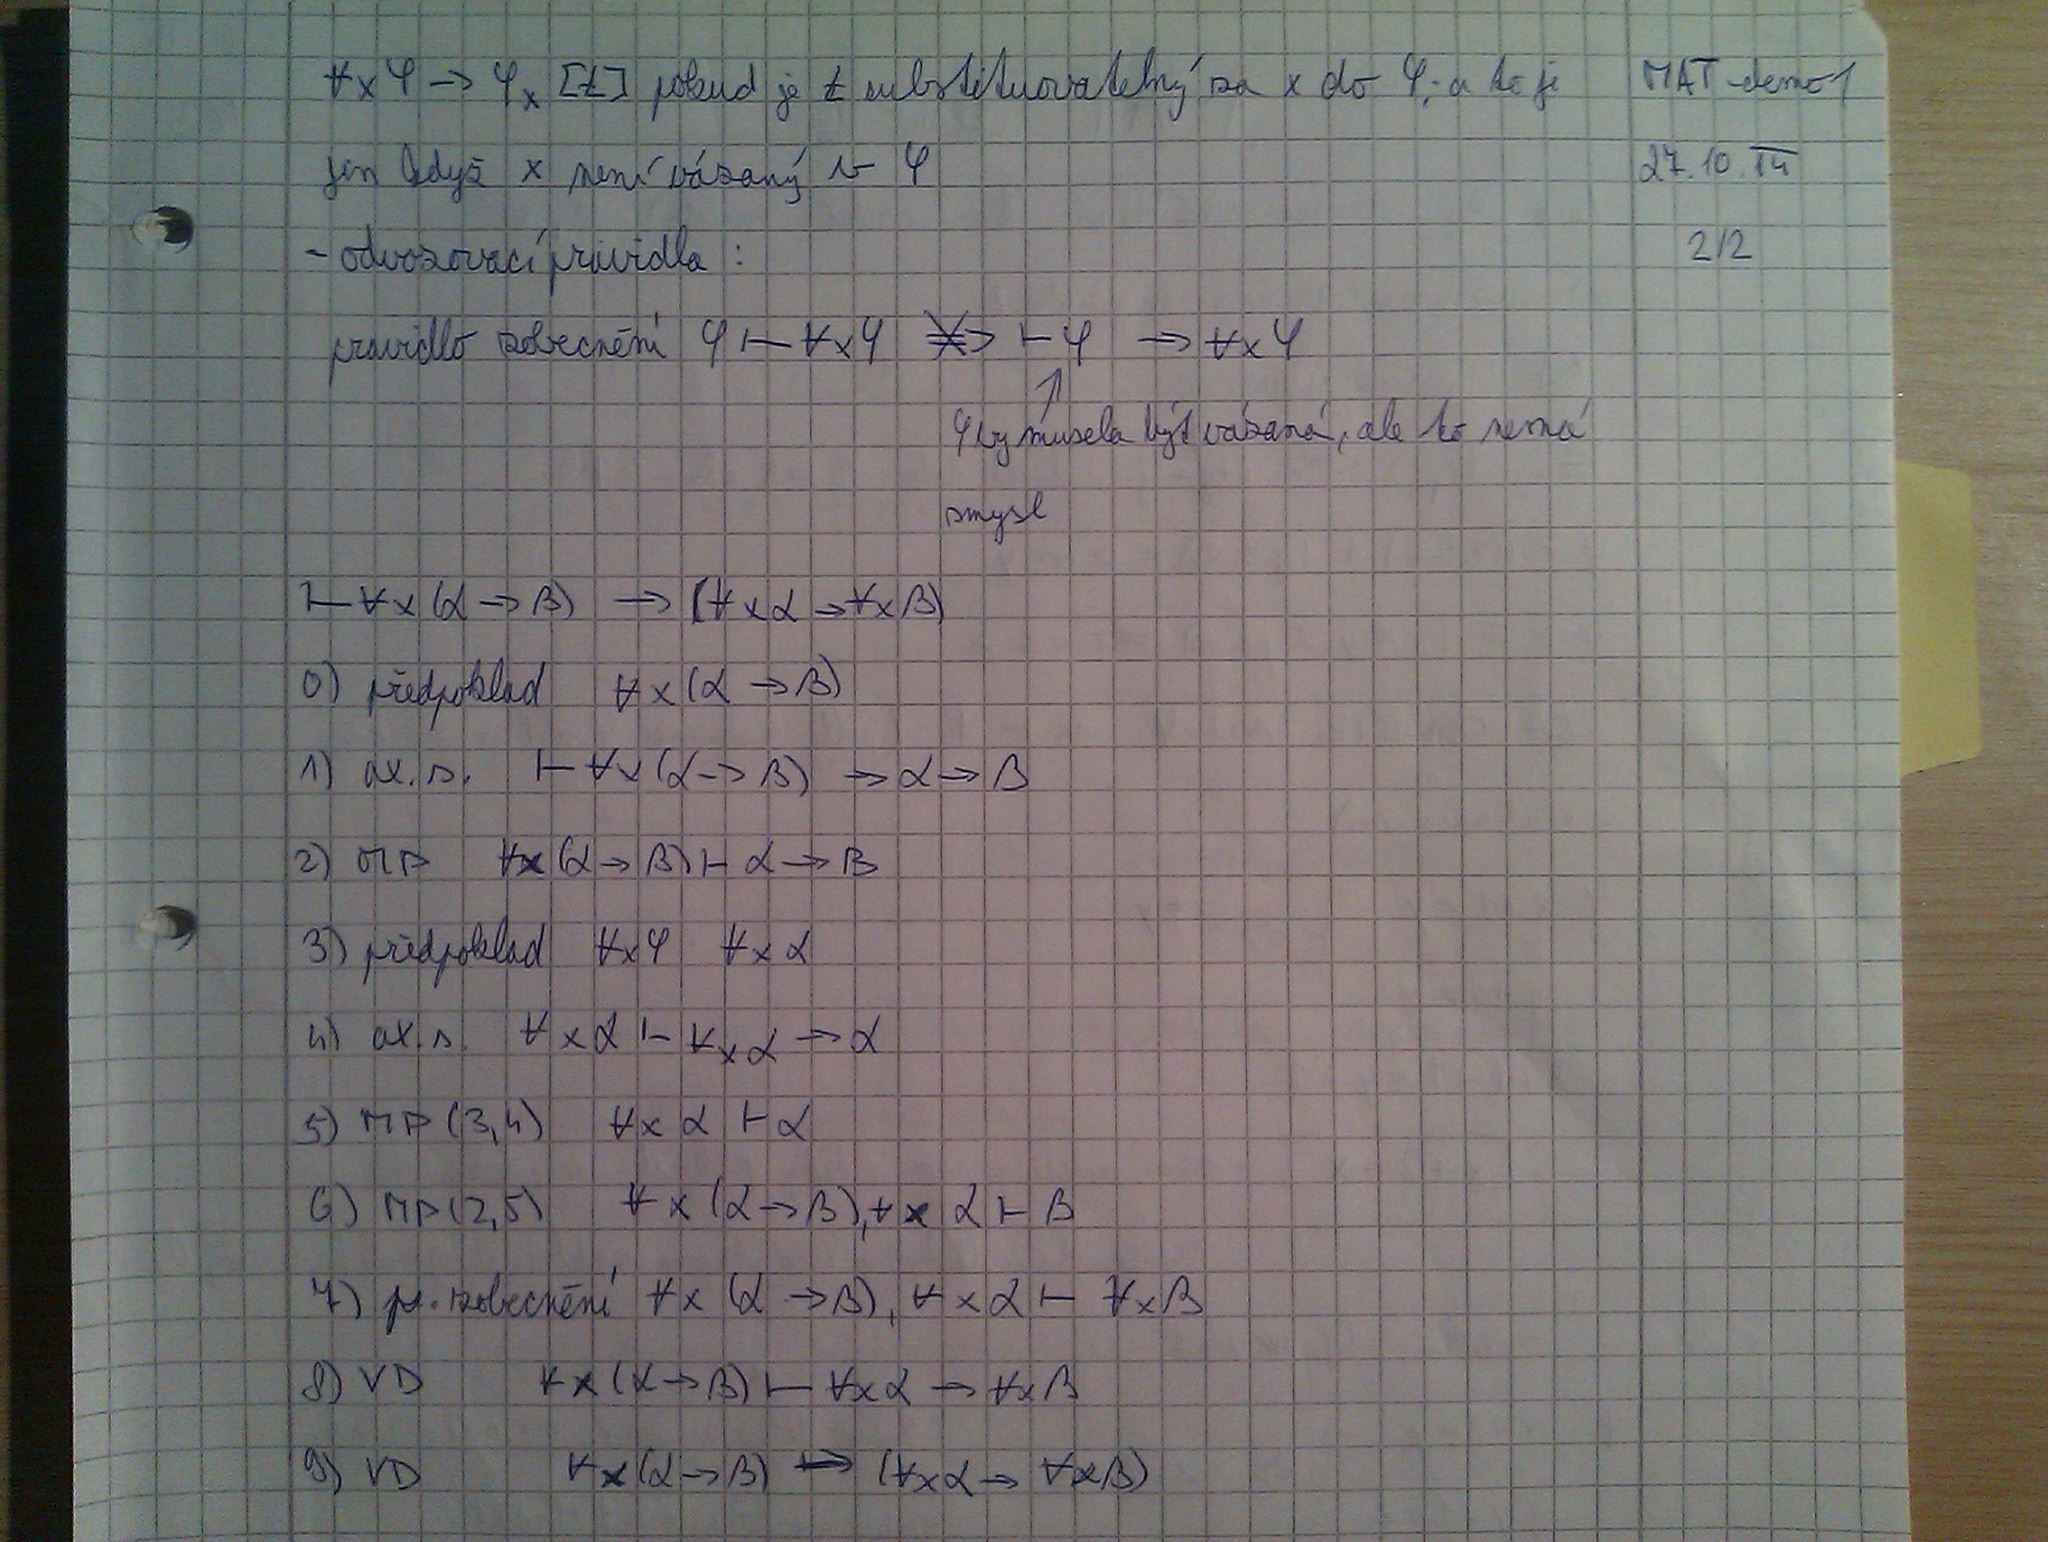 ∀x φ → φx [t] pokud je t substituovatelný za x do φ, a to je
MAT-demo1
jen když x není vázaný v φ
27.10.14
- odvozovací pravidla :
2/2
pravidlo zobecnění φ ⊢ ∀x φ ⇏ ⊢ φ → ∀x φ
↑
φ by musela být vázaná, ale to nemá
smysl
⊢ ∀x (α → β) → (∀x α → ∀x β)
0) předpoklad ∀x (α → β)
1) ax. s. ⊢ ∀x (α → β) → α → β
2) MP ∀x (α → β) ⊢ α → β
3) předpoklad ∀x φ ∀x α
4) ax. s. ∀x α ⊢ ∀x α → α
5) MP (3,4) ∀x α ⊢ α
6) MP (2,5) ∀x (α → β), ∀x α ⊢ β
7) pr. zobecnění ∀x (α → β), ∀x α ⊢ ∀x β
8) VD ∀x (α → β) ⊢ ∀x α → ∀x β
9) VD ∀x (α → β) → (∀x α → ∀x β)